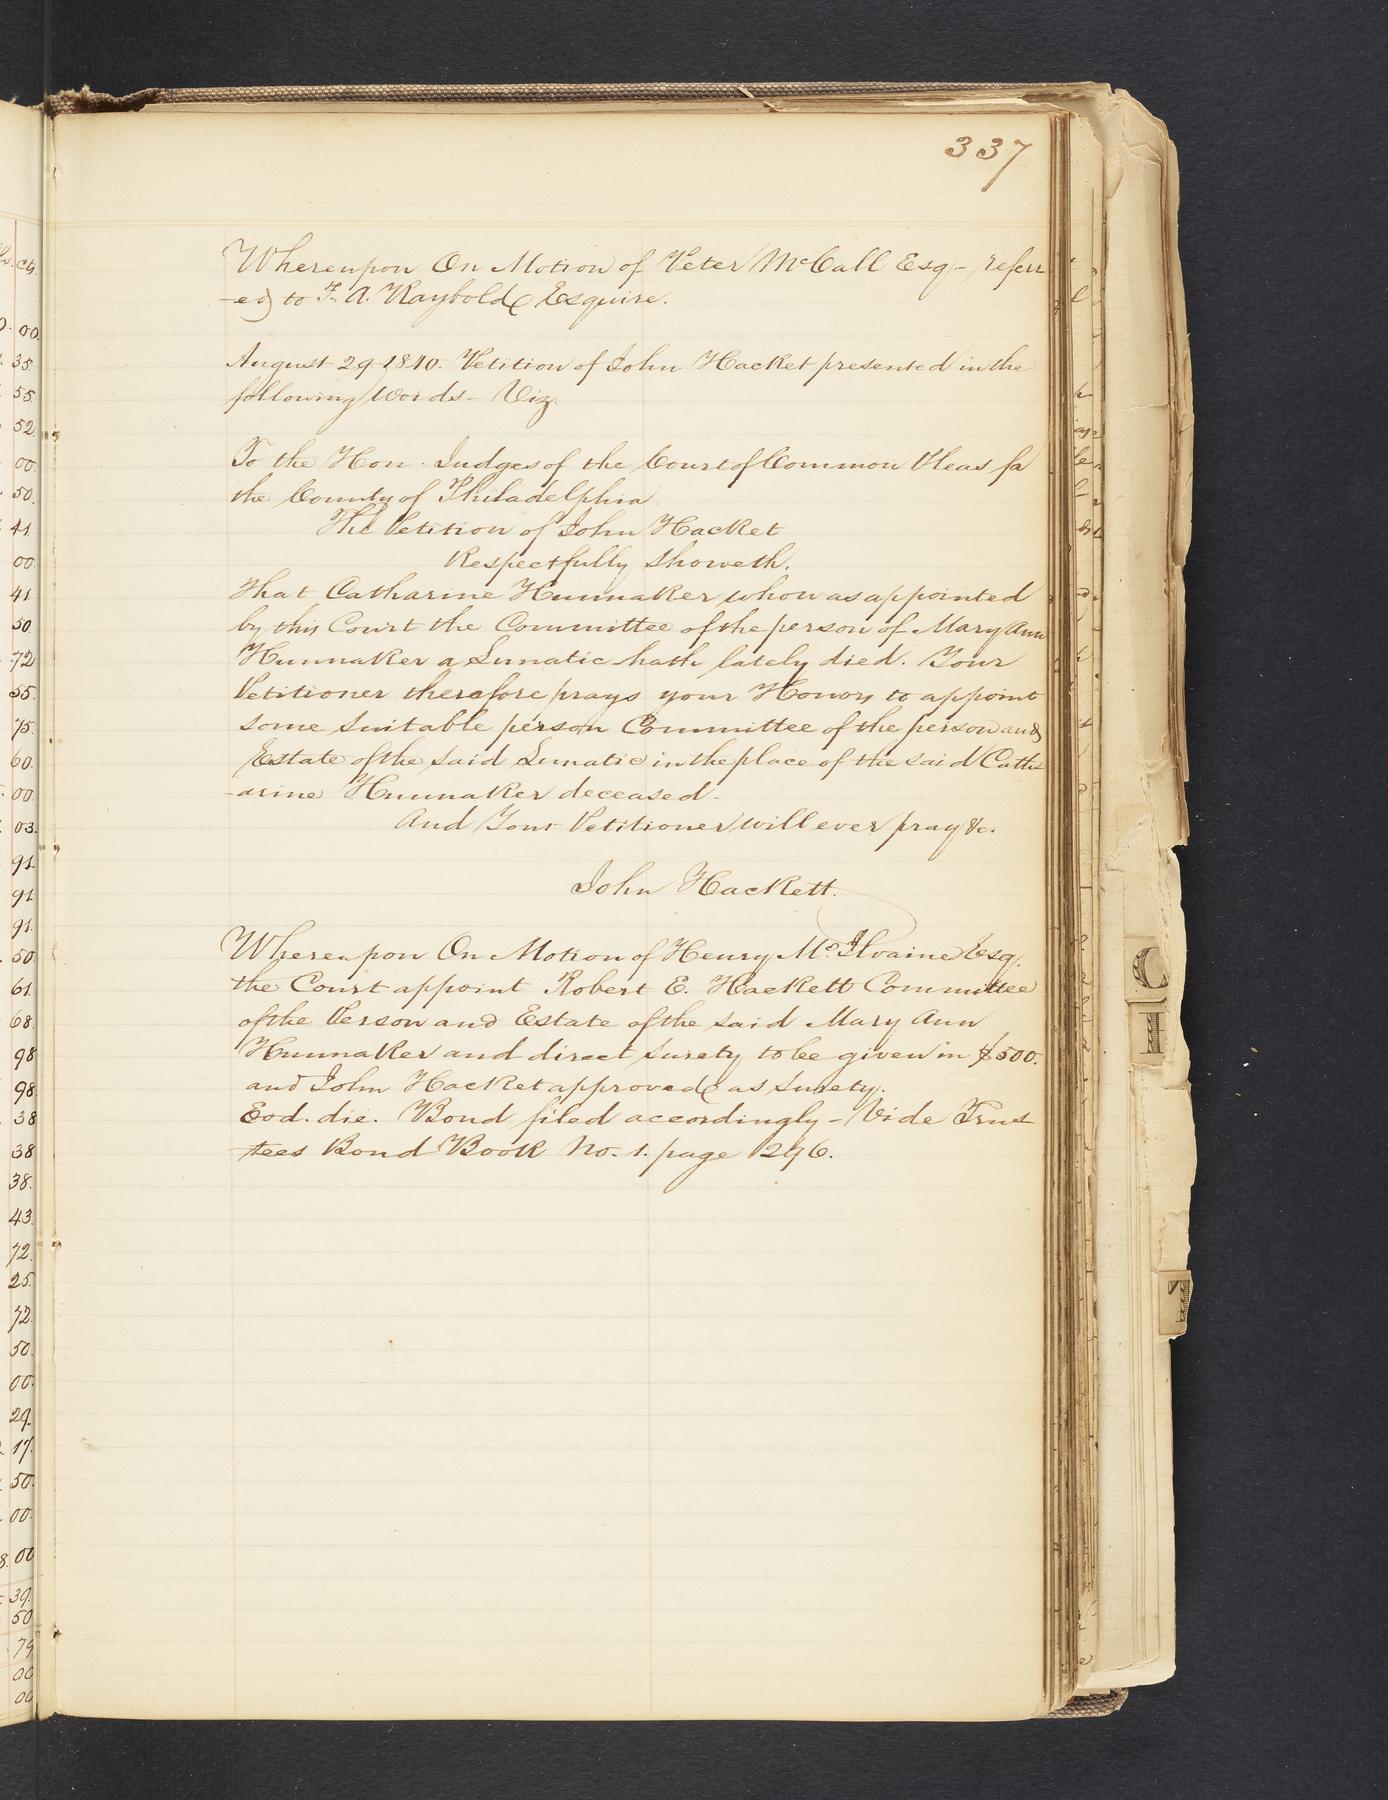 337
Whereupon On Motion of Peter McCall Esq - referr
-ed to F. A. Raybold Esquire.
August 29 1840. Petition of John Hacket presented in the
following words - Viz.
To the Hon. Judges of the Court of Common Pleas for
the County of Philadelphia
The Petition of John Hacket
Respectfully Showeth.
That Catharine Hunnaker who was appointed
by this Court the Committee of the person of Mary Ann
Hunnaker a Lunatic hath lately died. Your
Petitioner therefore prays your Honors to appoint
some suitable person Committee of the person and
Estate of the said Lunatic in the place of the said Cath
-arine Hunnaker deceased -
And Your Petitioner will ever pray &c.
John Hackett.
Whereupon On Motion of Henry McIlvaine Esq.
the Court appoint Robert E. Hackett Committee
of the Person and Estate of the said Mary Ann
Hunnaker and direct surety to be given in $500.
and John Hacket approved as Surety.
Eod. die. Bond filed accordingly - Vide Trus
-tees Bond Book No. 1. page 296.
C
I
T
cts.
00.
35.
55.
52.
00.
50.
41
00.
41
50.
72
55.
75.
60.
00.
03.
91.
91
91.
50.
61.
68.
98
98
38
38
38.
43.
72.
25.
72.
50.
00.
29.
17.
50.
00.
00
39.
50
79
00
00